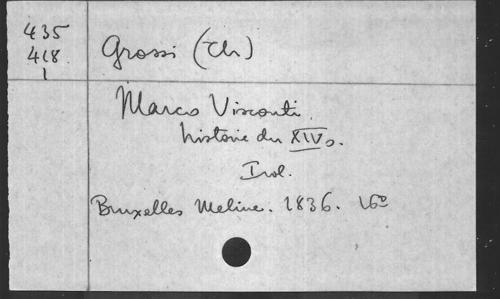 435
418
1
Grossi (Th)
Marco Visconti.
histoire du XIVs.
1 vol.
Bruxelles Meline. 1836. 16º